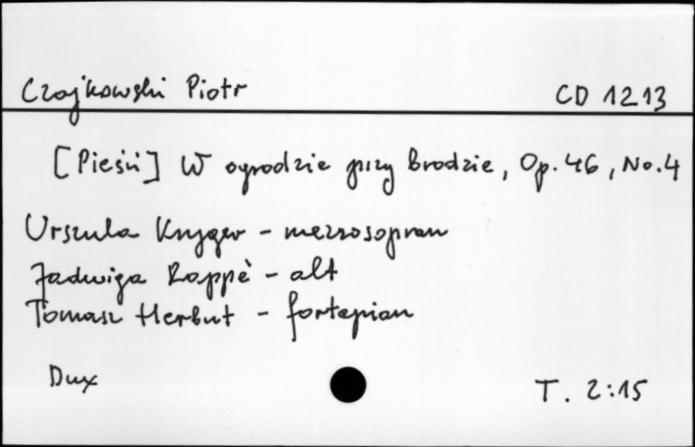 Czajkowski Piotr CD 1213
[Pieśń] W ogrodzie przy brodzie, Op. 46, No. 4
Urszula Kryger - mezzosopran
Jadwiga Rappè - alt
Tomasz Herbut - fortepian
Dux T. 2:15